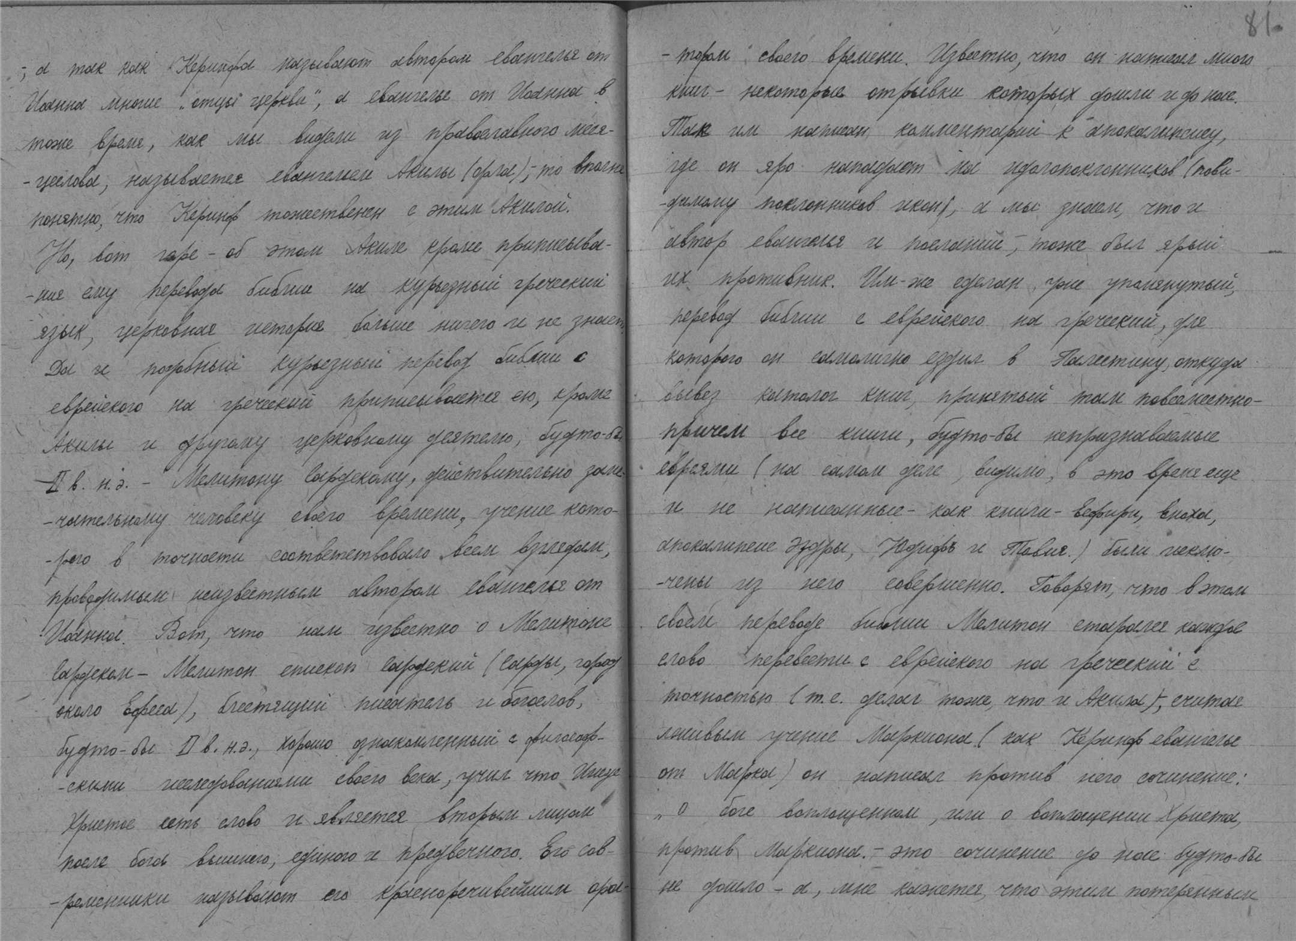 -; а так как Керинфа называют автором евангелья от
Иоанна многие "отцы церкви", а евангелье от Иоанна в
тоже время, как мы видели из православного меся-
-цеслова, называется евангелием Акилы (орла); то вполне
понятно, что Керинф тожественен с этим Акилой.
Но, вот горе - об этом Акиле кроме приписыва-
-ния ему перевода библии на курьезный греческий
язык, церковная история больше ничего и не знает.
Да и подобный курьезный перевод библии с
еврейского на греческий приписывается ею, кроме
Акилы и другому церковному деятелю, будто-бы
II в. н.э. - Мелитону Сардскому, действительно заме-
-чательному человеку своего времени, учение кото-
-рого в точности соответствовало всем взглядам,
проводимым неизвестным автором евангелья от
Иоанна. Вот, что нам известно о Мелитоне
Сардском - Мелитон епископ Сардский (Сарды, город
около Ефеса), блестящий писатель и богослов,
будто-бы II в. н.э., хорошо ознакомленный с философ-
-скими исследованиями своего века, учил что Иисус
Христос есть слово и является вторым лицом
после бога вышнего, единого и предвечного. Его сов-
-ременники называют его красноречивейшим ора-
81.
-тором своего времени. Известно, что он написал много
книг - некоторые отрывки которых дошли и до нас.
Так им написан комментарий к апокалипсису,
где он яро нападает на идолопоклонников (пови-
-димому поклонников икон), а мы знаем, что и
автор евангелья и посланий - тоже был ярый
их противник. Им-же сделан, уже упомянутый,
перевод библии с еврейского на греческий, для
которого он самолично ездил в Палестину, откуда
вывез каталог книг, принятый там повсеместно -
причем все книги, будто-бы непризнаваемые
евреями (на самом деле, видимо, в это время еще
и не написанные - как книги - Эсфири, Еноха,
апокалипсис Эздры, Юдифь и Товия.) были исклю-
-чены из него совершенно. Говорят, что в этом
своем переводе библии Мелитон старался каждое
слово перевести с еврейского на греческий с
точностью (т.е. делал тоже, что и Акила), считая
лживым учение Маркиона (как Керинф евангелье
от Марка) он написал против него сочинение:
"О боге воплощенном, или о воплощении Христа,
против Маркиона. - это сочинение до нас будто-бы
не дошло - а, мне кажется, что этим потерянным